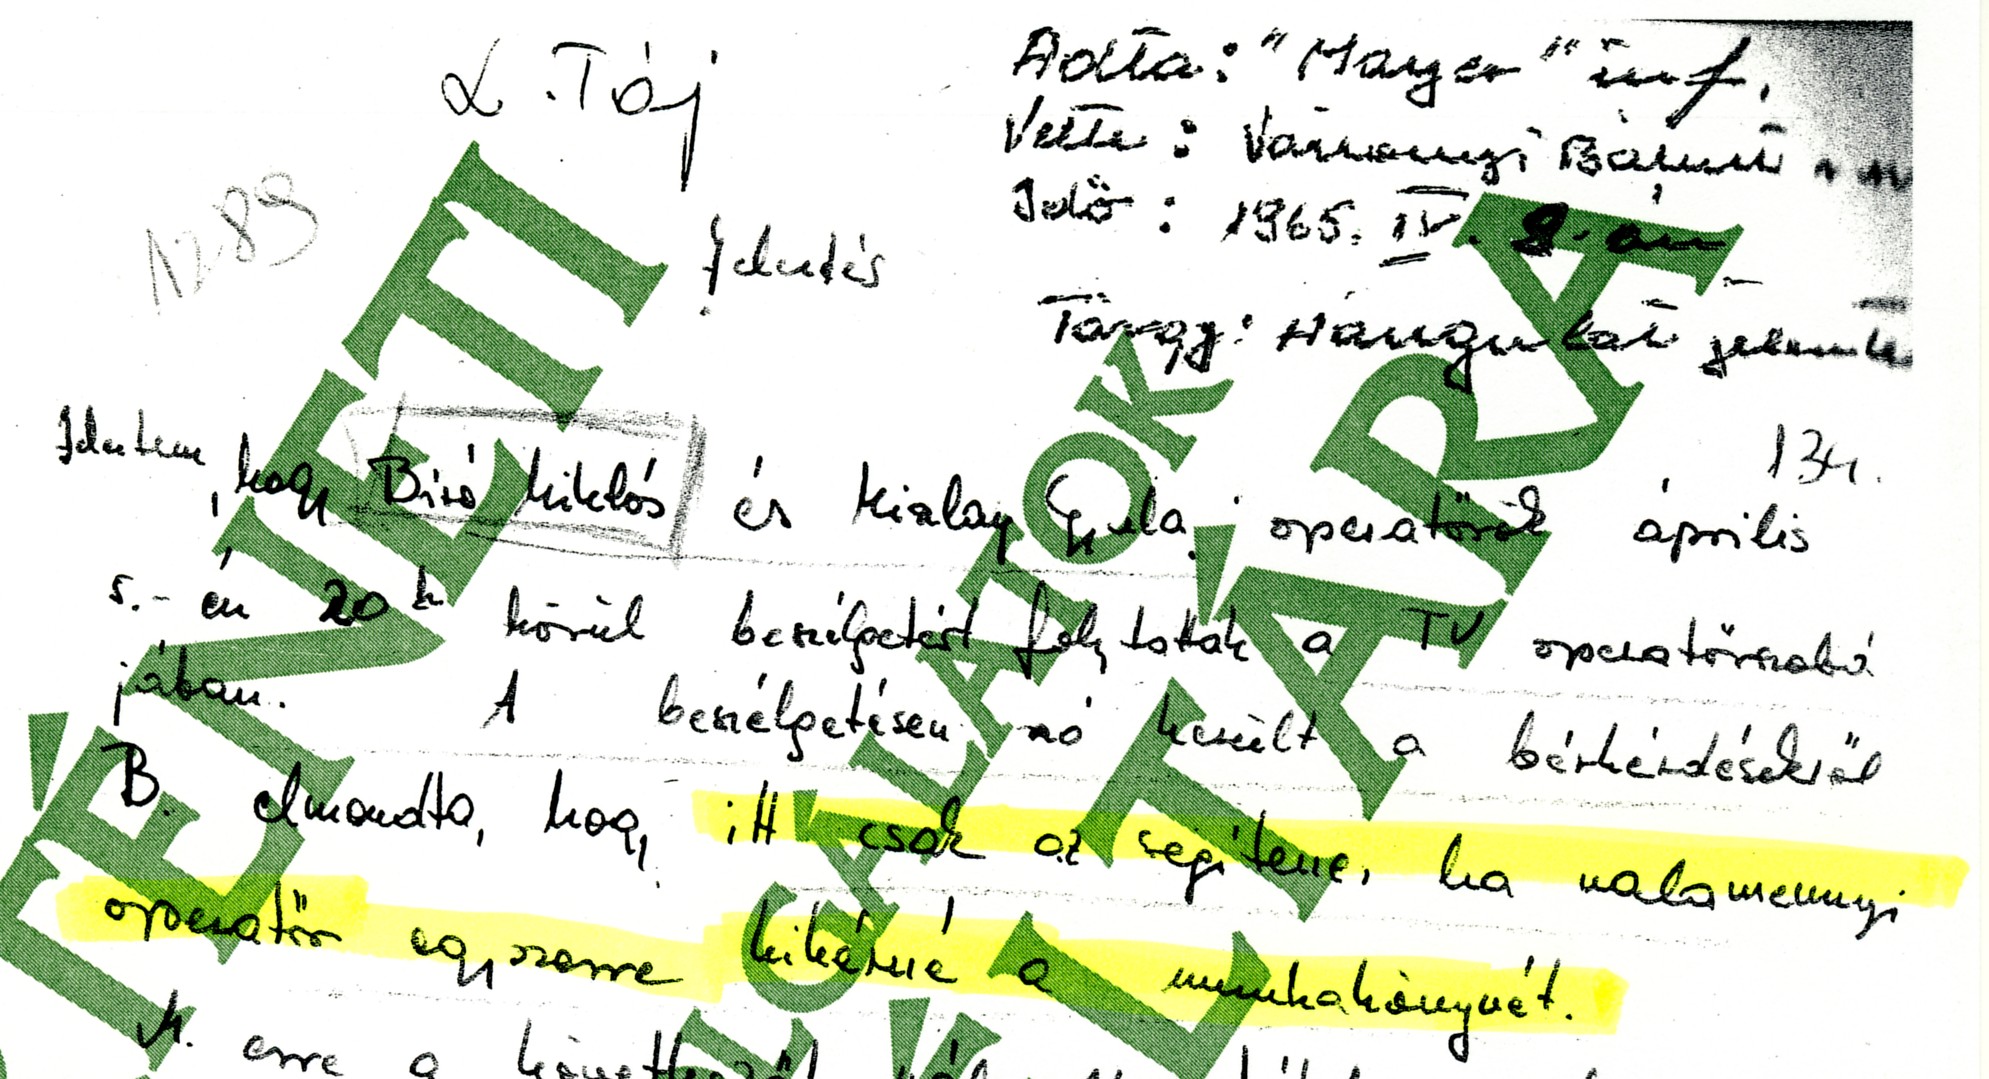 L. Táj
Adta: "Mayer" inf.
Vette: Várkonyi Bálint
Idő: 1965. IV. 9.-én
1289
Jelentés
Tárgy: Hangulat jelentés
134.
Jelentem, hogy Biró Miklós és Kislay Gyula operatőrök április
5.-én 20 h körül beszélgetést folytattak a TV operatőrszobá
jában. A beszélgetésen szó került a bérkérdésekről
B. elmondta, hogy itt csak az segítene, ha valamennyi
operatőr egyszerre kikérné a munkakönyvét.
K. erre a
TÖRTÉNETI
SZOLGÁLATOK
LEVÉLTÁRA